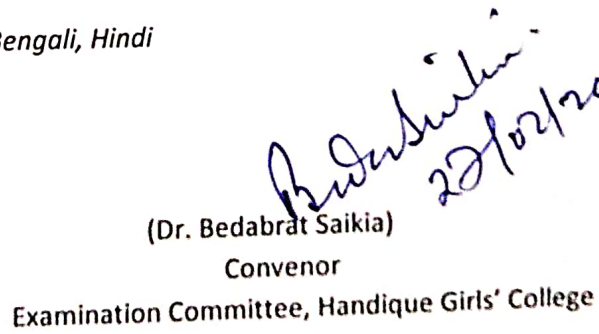 Bengali, Hindi
22/02/20
(Dr. Bedabrat Saikia)
Convenor
Examination Committee, Handique Girls' College